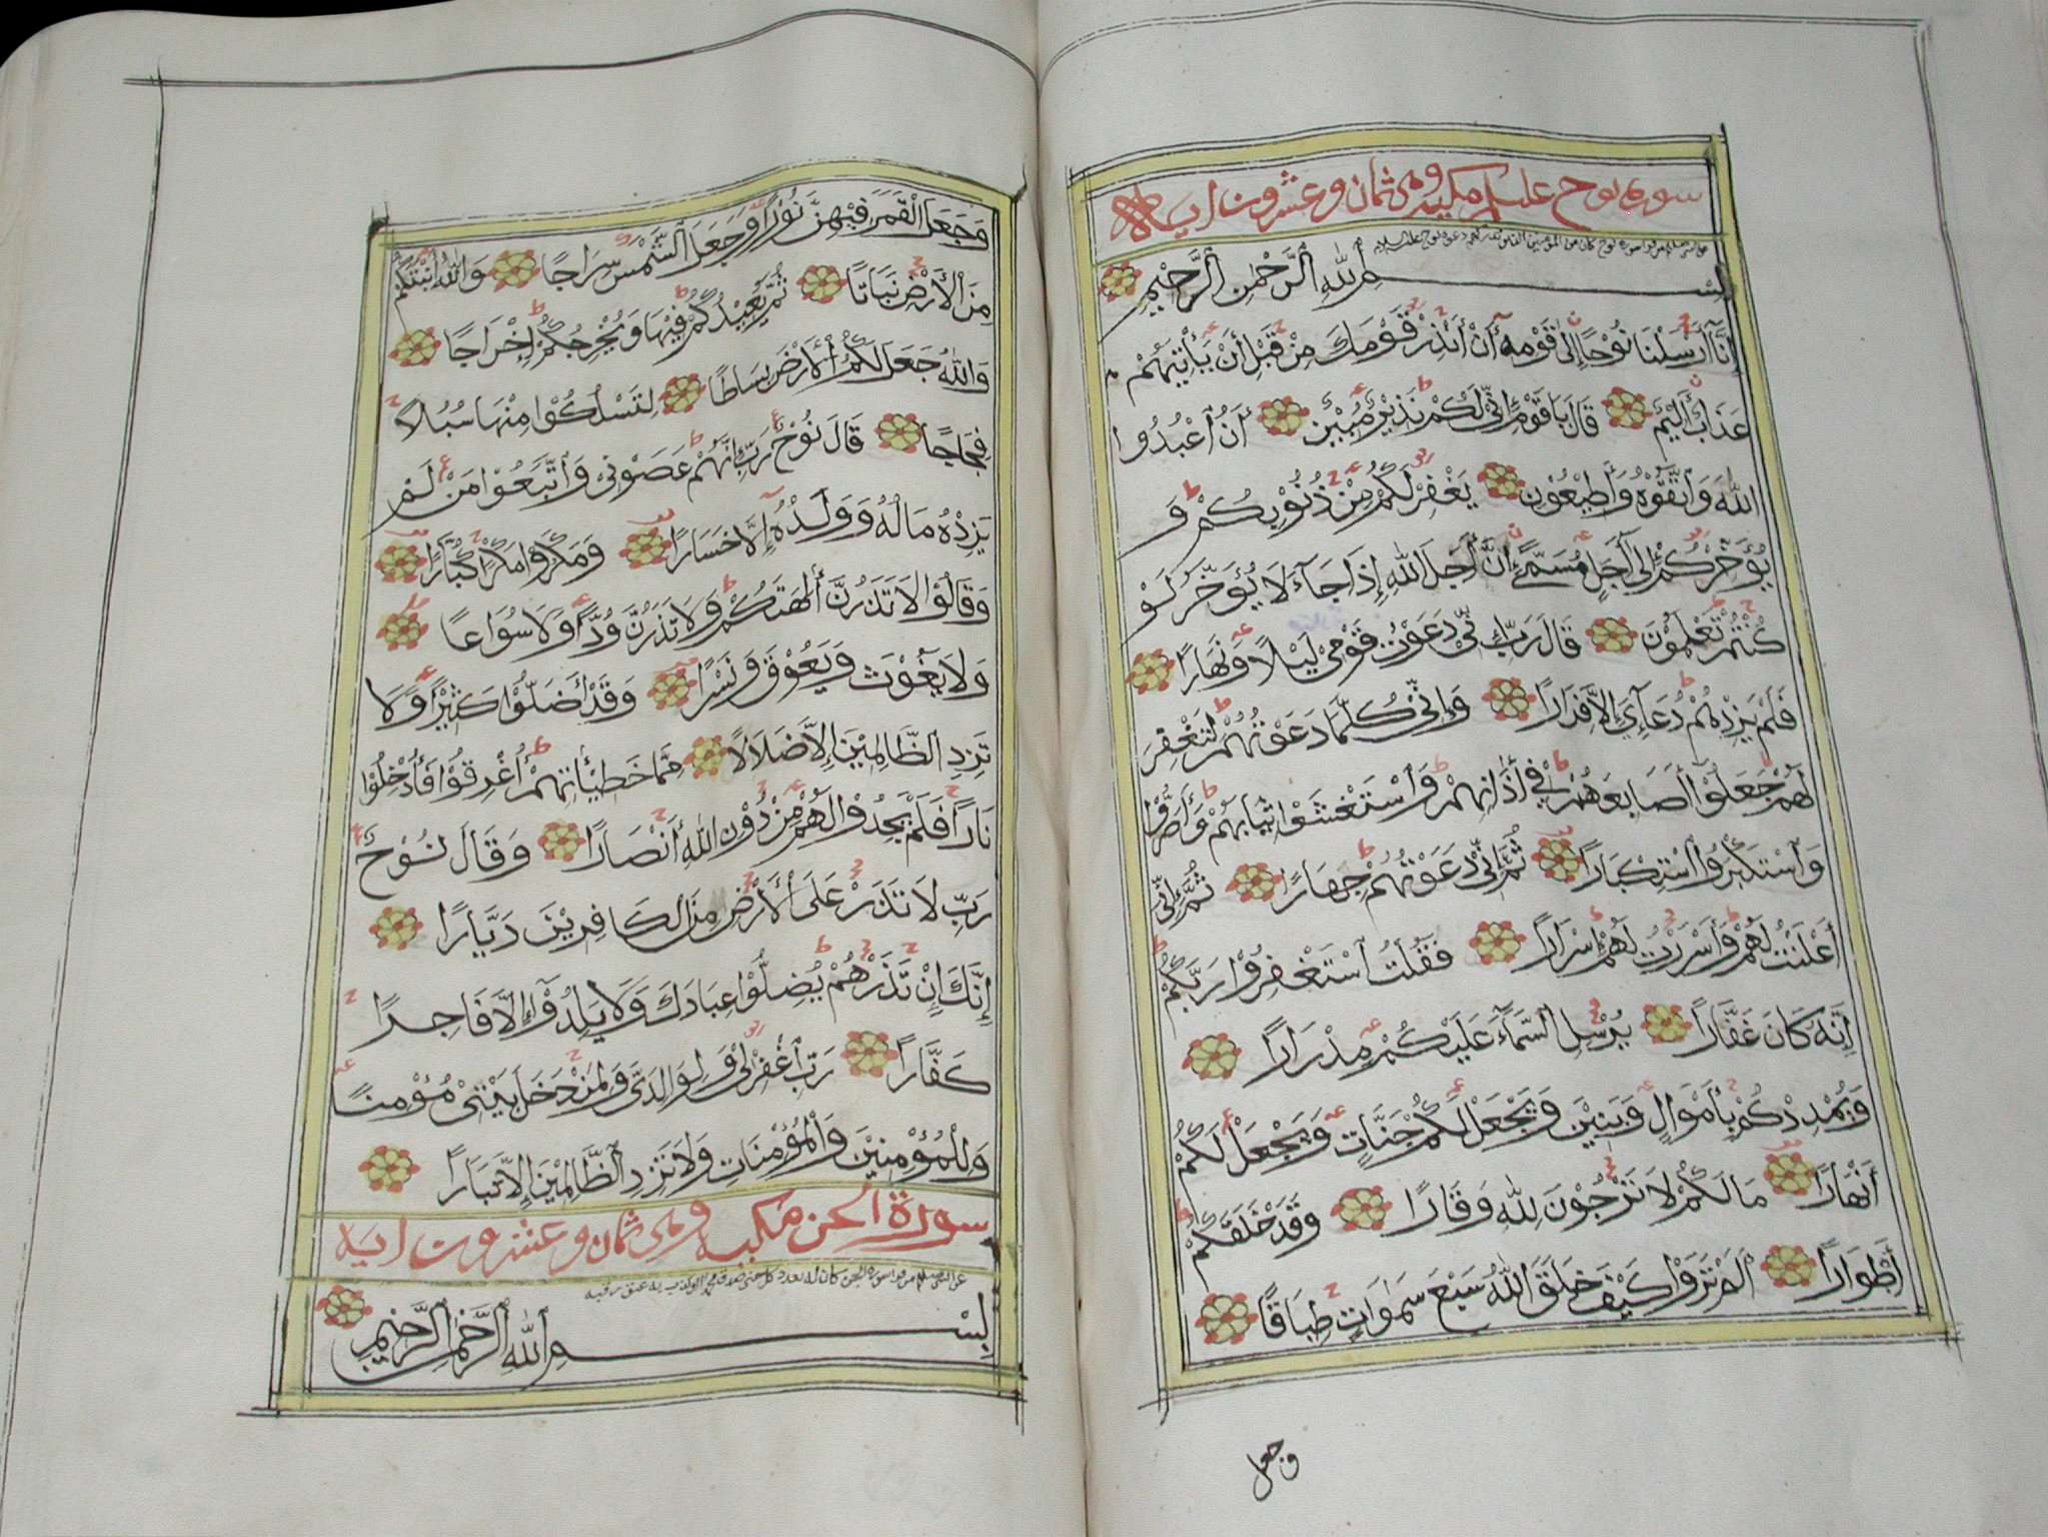 سورة نوح عليه السلام مكية وهي ثمان وعشرون اياة
بِسْمِ اللهِ الرَّحْمٰنِ الرَّحِيْمِ
اِنَّآ أَرْسَلْنَا نُوْحًا إِلٰى قَوْمِهٖٓ أَنْ أَنْذِرْ قَوْمَكَ مِنْ قَبْلِ أَنْ يَأْتِيَهُمْ
عَذَابٌ أَلِيْمٌ قَالَ يَا قَوْمِ إِنِّيْ لَكُمْ نَذِيْرٌ مُّبِيْنٌ أَنِ اعْبُدُوا
اللهَ وَاتَّقُوْهُ وَأَطِيْعُوْنِ يَغْفِرْ لَكُمْ مِنْ ذُنُوْبِكُمْ وَ
يُؤَخِّرْكُمْ إِلٰى أَجَلٍ مُسَمًّى إِنَّ أَجَلَ اللهِ إِذَا جَآءَ لَا يُؤَخَّرُ لَوْ
كُنْتُمْ تَعْلَمُوْنَ قَالَ رَبِّ إِنِّيْ دَعَوْتُ قَوْمِيْ لَيْلًا وَنَهَارًا
فَلَمْ يَزِدْهُمْ دُعَآءِيْ إِلَّا فِرَارًا وَإِنِّيْ كُلَّمَا دَعَوْتُهُمْ لِتَغْفِرَ
لَهُمْ جَعَلُوْآ أَصَابِعَهُمْ فِيْ أٰذَانِهِمْ وَاسْتَغْشَوْا ثِيَابَهُمْ وَأَصَرُّوْا
وَاسْتَكْبَرُوا اسْتِكْبَارًا ثُمَّ إِنِّيْ دَعَوْتُهُمْ جِهَارًا ثُمَّ إِنِّيْ
أَعْلَنْتُ لَهُمْ وَأَسْرَرْتُ لَهُمْ إِسْرَارًا فَقُلْتُ اسْتَغْفِرُوْا رَبَّكُمْ
اِنَّهُ كَانَ غَفَّارًا يُرْسِلِ السَّمَآءَ عَلَيْكُمْ مِدْرَارًا
وَيُمْدِدْكُمْ بِأَمْوَالٍ وَبَنِيْنَ وَيَجْعَلْ لَكُمْ جَنَّاتٍ وَيَجْعَلْ لَكُمْ
أَنْهَارًا مَا لَكُمْ لَا تَرْجُوْنَ لِلّٰهِ وَقَارًا وَقَدْ خَلَقَكُمْ
أَطْوَارًا أَلَمْ تَرَوْا كَيْفَ خَلَقَ اللهُ سَبْعَ سَمٰوَاتٍ طِبَاقًا
وجعل
وَجَعَلَ الْقَمَرَ فِيْهِنَّ نُوْرًا وَجَعَلَ الشَّمْسَ سِرَاجًا وَاللهُ أَنْبَتَكُمْ
مِنَ الْأَرْضِ نَبَاتًا ثُمَّ يُعِيْدُكُمْ فِيْهَا وَيُخْرِجُكُمْ إِخْرَاجًا
وَاللهُ جَعَلَ لَكُمُ الْأَرْضَ بِسَاطًا لِتَسْلُكُوْا مِنْهَا سُبُلًا
فِجَاجًا قَالَ نُوْحٌ رَبِّ إِنَّهُمْ عَصَوْنِيْ وَاتَّبَعُوْا مَنْ لَمْ
يَزِدْهُ مَالُهُ وَوَلَدُهُ إِلَّا خَسَارًا وَمَكَرُوْا مَكْرًا كُبَّارًا
وَقَالُوْا لَا تَذَرُنَّ أٰلِهَتَكُمْ وَلَا تَذَرُنَّ وَدًّا وَلَا سُوَاعًا
وَلَا يَغُوْثَ وَيَعُوْقَ وَنَسْرًا وَقَدْ أَضَلُّوْا كَثِيْرًا وَلَا
تَزِدِ الظَّالِمِيْنَ إِلَّا ضَلَالًا مِمَّا خَطِيْأٰتِهِمْ أُغْرِقُوْا فَأُدْخِلُوْا
نَارًا فَلَمْ يَجِدُوْا لَهُمْ مِنْ دُوْنِ اللهِ أَنْصَارًا وَقَالَ نُوْحٌ
رَبِّ لَا تَذَرْ عَلَى الْأَرْضِ مِنَ الْكَافِرِيْنَ دَيَّارًا
إِنَّكَ إِنْ تَذَرْهُمْ يُضِلُّوْا عِبَادَكَ وَلَا يَلِدُوْآ إِلَّا فَاجِرًا
كَفَّارًا رَبِّ اغْفِرْ لِيْ وَلِوَالِدَيَّ وَلِمَنْ دَخَلَ بَيْتِيَ مُؤْمِنًا
وَلِلْمُؤْمِنِيْنَ وَالْمُؤْمِنَاتِ وَلَا تَزِدِ الظَّالِمِيْنَ إِلَّا تَبَارًا
سورة الجن مكية وهي ثمان وعشرون اية
بِسْمِ اللهِ الرَّحْمٰنِ الرَّحِيْمِ